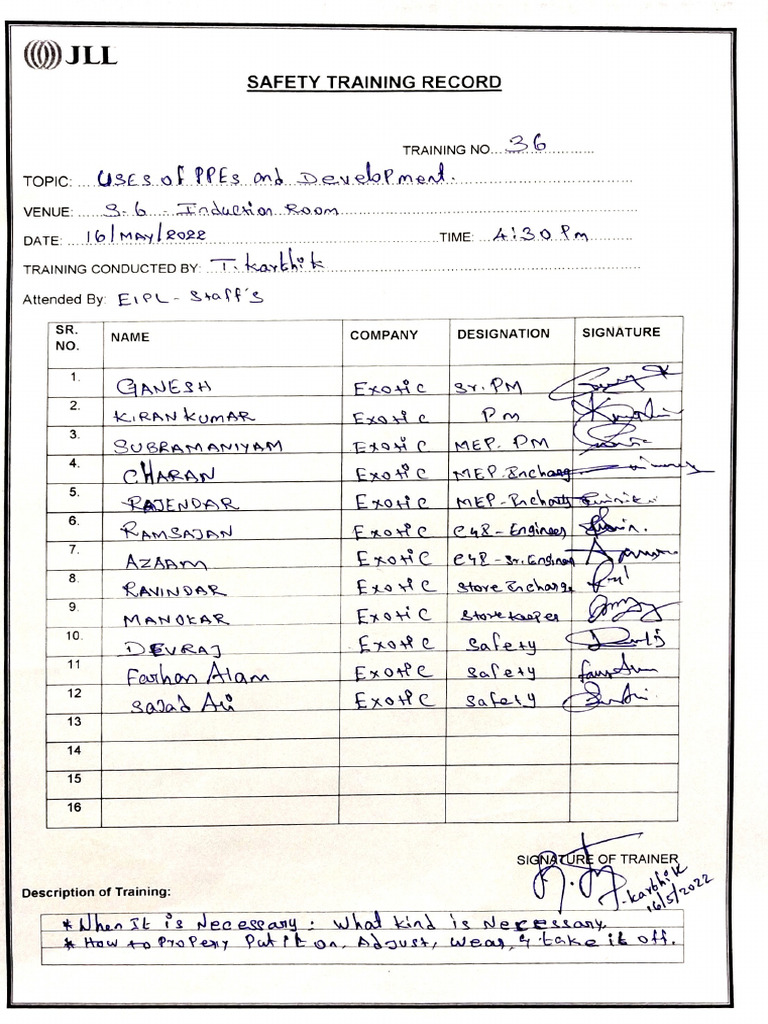 JLL
SAFETY TRAINING RECORD
TRAINING NO...36
TOPIC: USES of PPEs and Development.
VENUE: S-6 - Induction Room
DATE: 16/MAY/2022 TIME: 4:30 Pm
TRAINING CONDUCTED BY: T. Karthik
Attended By: EIPL - Staff's
SR. NO. NAME COMPANY DESIGNATION SIGNATURE
1. GANESH Exotic Sr. PM
2. KIRAN KUMAR Exotic Pm
3. SUBRAMANIYAM Exotic MEP. PM
4. CHARAN Exotic MEP. Incharg
5. RAJENDAR Exotic MEP-
6. RAMSAJAN Exotic - Engineer
7. AZAAM Exotic - Sr. Engineer
8. RAVINDAR Exotic Store Incharge
9. MANOKAR Exotic Store keeper
10. DEVRAJ Exotic Safety
11 Farhan Alam Exotic Safety
12 Sajad Ali Exotic Safety
13
14
15
16
SIGNATURE OF TRAINER
T. Karthik
16/5/2022
Description of Training:
* When It is Necessary: What kind is Necessary.
* How to Propery Put it on, Adjust, Wear, & take it off.